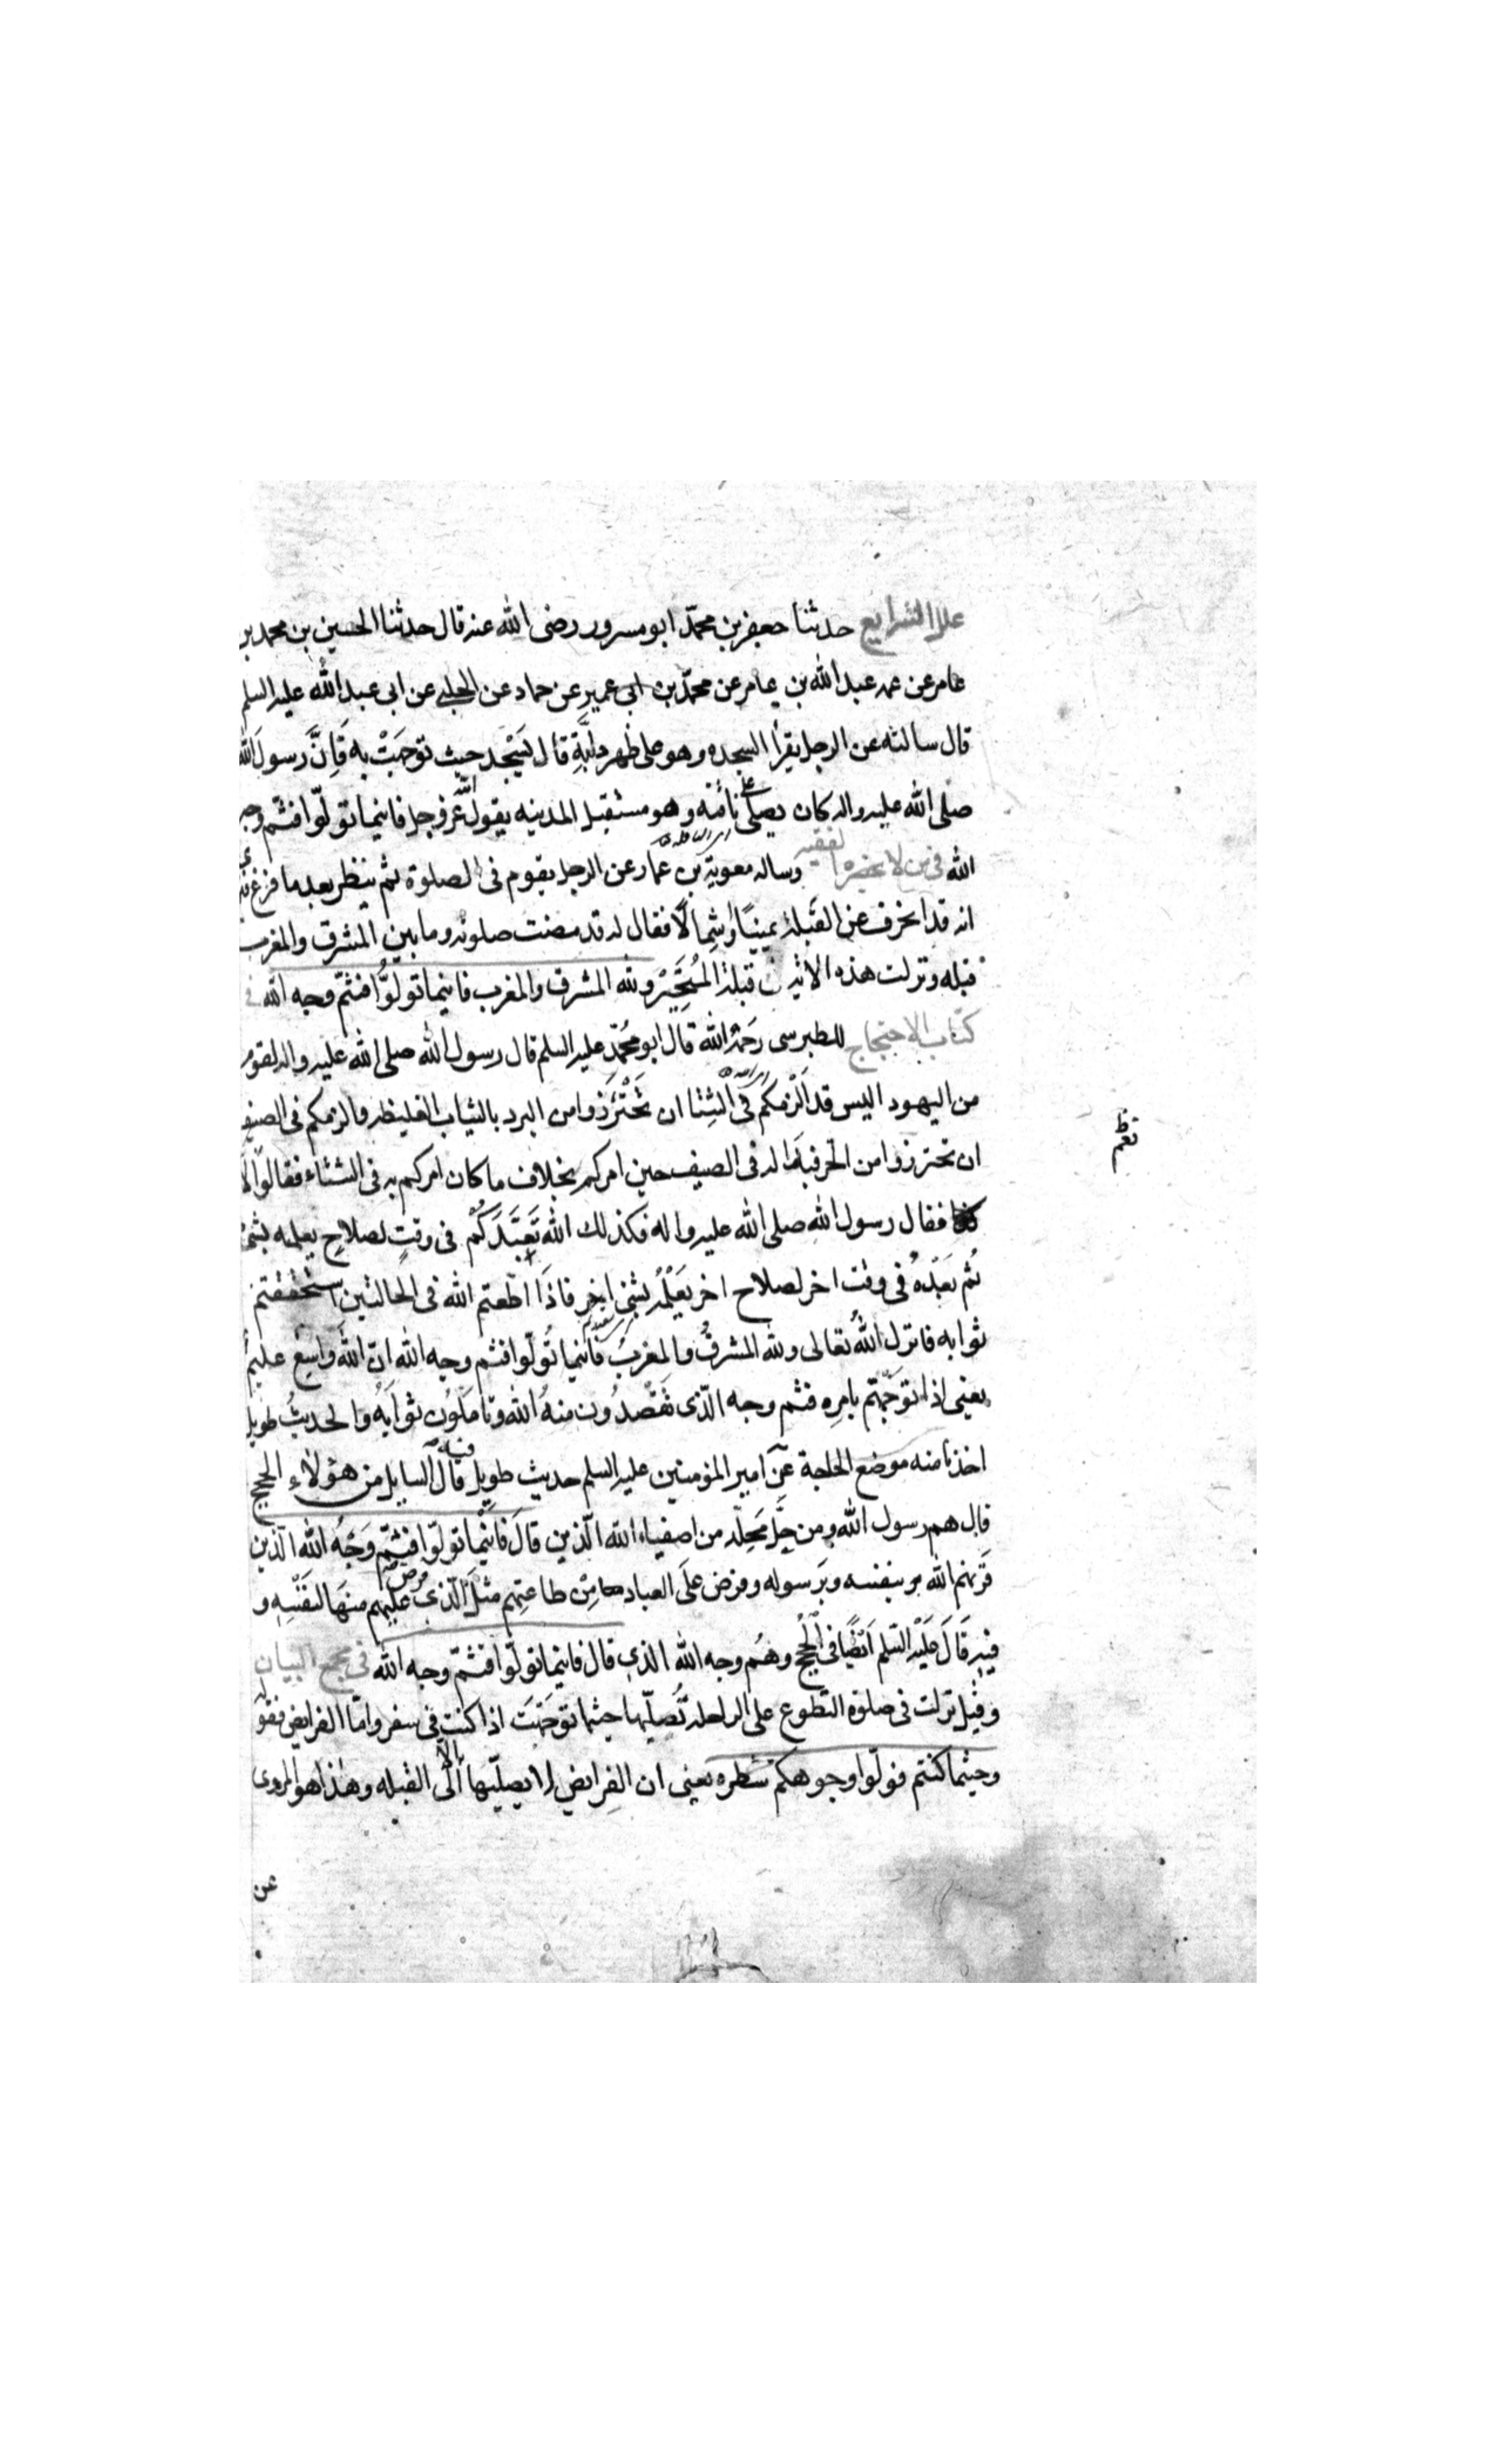 علل الشرايع حدثنا جعفر بن محمّد ابو مسرور رضى الله عنه قال حدثنا الحسين بن محمد بن
عامر عن عمه عبد الله بن عامر عن محمّد بن ابى عمير عن حماد عن الحلبى عن ابى عبد الله عليه السلم
قال سالته عن الرجل يقرأ السجده وهو على ظهر دابَّةٍ قال يَسْجُد حيث توجّهَتْ به فَاِنَّ رسولَ الله
صلى الله عليه واله كان يصلّى على ناقته وهو مستقبل المدينه يقول الله عز وجل فاينما تولّوا فثمّ وجه
الله فى من لا يحضره الفقيه وساله معوية بن عمار عن الرجل يقوم فى الصلوة ثم ينظر بعد ما فرغ
انه قد انحرف عن القبلة يمينًا وشِمالًا فقال له قد مضت صلوته وما بين المشرق والمغرب
قبله ونزلت هذه الاية فى قبلة المُتَحَيّر ولله المشرق والمغرب فاينما تولُّوا فثمّ وجه الله فى
كتاب الاحتجاج للطبرسى رحمة الله قال ابو محُمّد عليه السلم قال رسول الله صلى الله عليه واله لقوم
من اليهود اليس قد اَلْزمكُم فى الشِتا ان تَحْتَرزوا من البرد بالثياب الغليظه والزمكم فى الصيف
ان تحترزوا من الحر فبدَا له فى الصيف حين امركم بخلاف ما كان امركم به فى الشتاء فقالوا لا
فقال رسول الله صلى الله عليه واله فكذلك الله تَعَبَّدَكُمْ فى وقتٍ لصلاحٍ يعلمه بشئ
ثُم بَعدَهُ فى وقت اخر لصلاح اخر يَعْلَمُه بشئ اخر فاذَا اطعتم الله فى الحالتين استحققتم
ثوابه فانزل اللهُ تعالى ولله المشرقُ والمغربُ فاينما تُولّوا فثم وجه الله انّ اللهَ واسِعٌ عليمٌ
يعنى اذا توجّهتم بامرِه فثم وجه الّذى تَقْصدُون منهُ الله وتاملُون ثوابَهُ والحديثُ طويل
اخذنا منه موضع الحاجة عن امير المؤمنين عليه السلم حديث طويل فيه قال السايل من هؤلاء الحجج
قال هم رسول الله ومن حلَّ مَحِلّه من اصفياء الله الّذين قالَ فَاَيْنَما تولّوا فثمّ وَجْهُ الله الذين
قرنهم الله بنفسه وبَرسوله وفرض علَى العباد مِنْ طاعتِهم مثلَ الّذى فرض عليهم منهَا لنَفْسِهِ و
فيه قَالَ عَلَيْه السّلم اَيْضًا فى الْحُجج وهُم وجه الله الذى قال فاينما تولّوا فثمّ وجه الله فى مجمع البيان
وقيل نزلت فى صلوة التطوع على الراحلة تُصلّيها حيثما توجّهْتَ اذا كنت فى سفر وامّا الفرايض فقوله
وحيثما كنتم فولّوا وجوهكم شطره يعنى ان الفرايض لا يصلّيها الا الى القبله وهذا هو المروى
عن